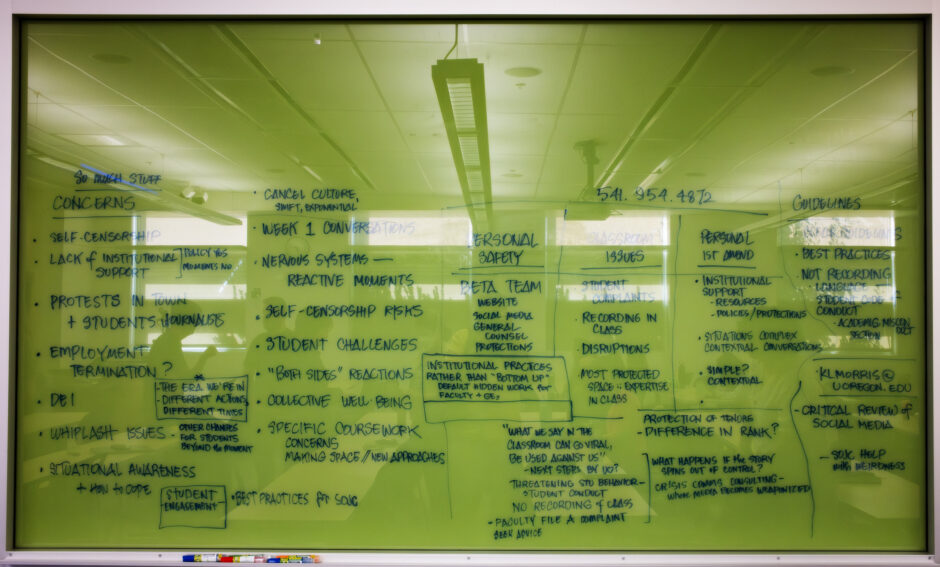 SO MUCH STUFF
CONCERNS
• SELF-CENSORSHIP
• LACK of INSTITUTIONAL
SUPPORT
POLICY YES
MOMENTS NO
• PROTESTS IN TOWN
+ STUDENTS + JOURNALISTS
• EMPLOYMENT
TERMINATION?
- THE ERA WE'RE IN
- DIFFERENT ACTIONS,
DIFFERENT TIMES
• DEI
• WHIPLASH ISSUES -
OTHER CHANGES
FOR STUDENTS
BEYOND the MOMENT
• SITUATIONAL AWARENESS
+ HOW to COPE
STUDENT
ENGAGEMENT
• BEST PRACTICES for SOJC
• CANCEL CULTURE,
SWIFT, EXPONENTIAL
• WEEK 1 CONVERSATIONS
• NERVOUS SYSTEMS —
REACTIVE MOMENTS
• SELF-CENSORSHIP RISKS
• STUDENT CHALLENGES
• "BOTH SIDES" REACTIONS
• COLLECTIVE WELL-BEING
• SPECIFIC COURSEWORK
CONCERNS
MAKING SPACE // NEW APPROACHES
541.954.4872
PERSONAL
SAFETY
BETA TEAM
WEBSITE
SOCIAL MEDIA
GENERAL
COUNSEL
PROTECTIONS
INSTITUTIONAL PRACTICES
RATHER THAN "BOTTOM UP"
DEFAULT HIDDEN WORKS for
FACULTY + GEs
CLASSROOM
ISSUES
STUDENT
COMPLAINTS
• RECORDING IN
CLASS
• DISRUPTIONS
• MOST PROTECTED
SPACE: EXPERTISE
IN CLASS
PERSONAL
1ST AMEND
• INSTITUTIONAL
SUPPORT
- RESOURCES
- POLICES/PROTECTIONS
• SITUATIONS COMPLEX
CONTEXTUAL CONVERSATIONS
• SIMPLE?
CONTEXTUAL
"WHAT WE SAY IN THE
CLASSROOM CAN GO VIRAL,
BE USED AGAINST US"
- NEXT STEPS BY UO?
THREATENING STD BEHAVIOR —
STUDENT CONDUCT
NO RECORDING of CLASS
- FACULTY FILE A COMPLAINT
SEEK ADVICE
PROTECTION OF TENURE
- DIFFERENCE IN RANK?
WHAT HAPPENS IF the STORY
SPINS OUT OF CONTROL?
- CRISIS COMMS CONSULTING -
WHEN MEDIA BECOMES WEAPONIZED
GUIDELINES
GUIDELINES
• BEST PRACTICES
• NOT RECORDING
• LANGUAGE
STUDENT CODE of
CONDUCT
- ACADEMIC MISCONDUCT
SECTION
• KLMORRIS@
UOREGON.EDU
- CRITICAL REVIEW of
SOCIAL MEDIA
- SOJC HELP
with WEIRDNESS